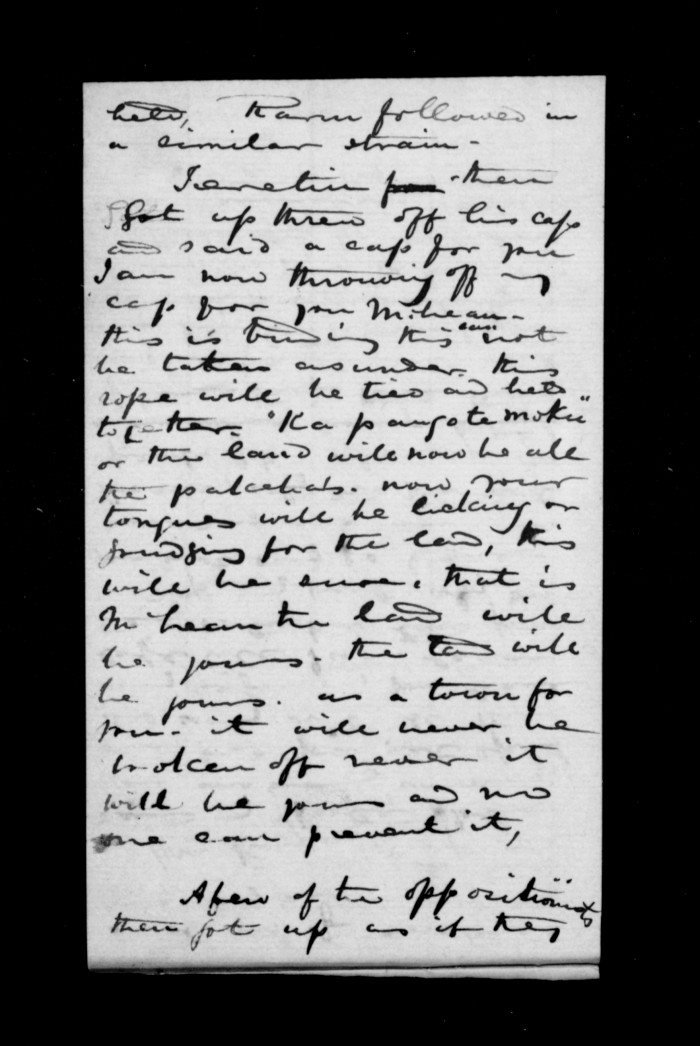 held, Karu followed in
a similar strain -
Ieretiu then
Got up threw off his cap
and said a cap for you
I am now throwing off my
cap for you McLean -
this is binding this can not
be taken asunder. this
rope will be tied and held
together. "Ka pango te moku"
or the land will now be all
the pakeha's. now your
tongues will be licking or
grudging for the land, this
will be sure. that is
McLean the land will
be yours. the land will
be yours. as a town for
you. it will never be
broken off never it
will be yours and no
one can prevent it,
A few of the oppositionists
then got up as if they